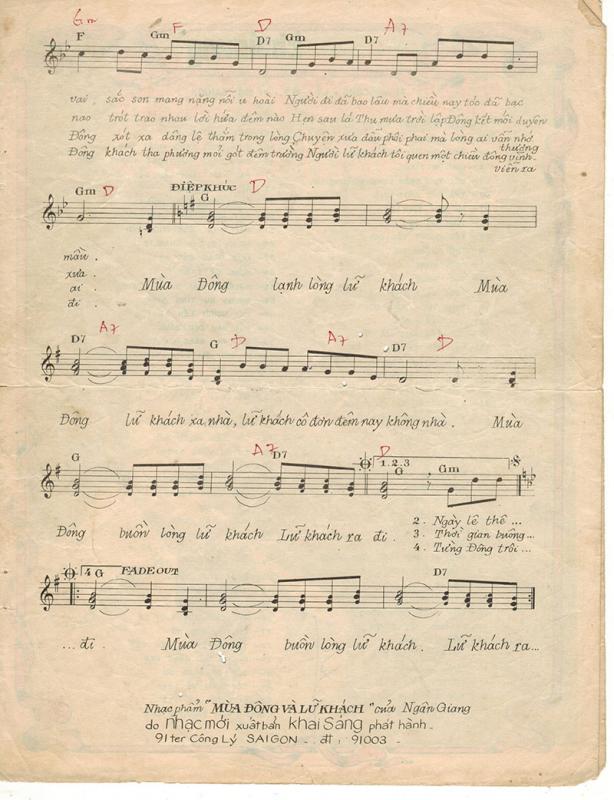 Gm F D A7
F Gm D7 Gm D7
vai, sắc son mang nặng nỗi u hoài Người đi đã bao lâu mà chiều nay tóc đã bạc
nao trót trao nhau lời hứa đêm nào Hẹn sau lá Thu mưa trời lập Đông kết mối duyên
Đông xót xa dâng lệ thắm trong lòng Chuyện xưa dẫu phôi phai mà lòng ai vẫn nhớ thương
Đông khách tha phương mỏi gót đêm trường Người lữ khách tôi quen một chiều đông vĩnh viễn ra
Gm D ĐIỆP KHÚC D
G
mầu.
xưa.
ai.
đi.
Mùa Đông lạnh lòng lữ khách Mùa
A7 D A7 D
D7 G D7
Đông lữ khách xa nhà, lữ khách cô đơn đêm nay không nhà. Mùa
G A7 D7 D 1.2.3 G Gm
Đông buồn lòng lữ khách Lữ khách ra đi.
2. Ngày lê thê...
3. Thời gian buông...
4. Từng Đông trôi...
4 G FADE OUT D7
...đi. Mùa Đông buồn lòng lữ khách. Lữ khách ra...
Nhạc phẩm "MÙA ĐÔNG VÀ LỮ KHÁCH" của Ngân Giang
do nhạc mới xuất bản khai Sáng phát hành_
91 ter Công Lý SAIGON _ đt: 91003_